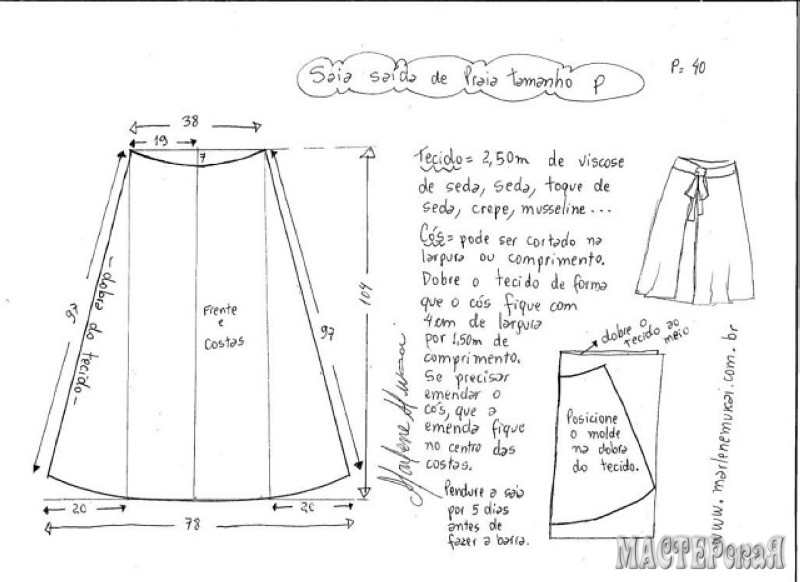 Saia saída de Praia tamanho P
P= 40
38
19
7
97
- dobra do tecido -
Frente
e
Costas
97
104
20
20
78
Tecido = 2,50m de viscose
de seda, seda, toque de
seda, crepe, musseline...
Cós = pode ser cortado na
largura ou comprimento.
Dobre o tecido de forma
que o cós fique com
4cm de largura
por 1,50m de
comprimento.
Se precisar
emendar o
cós, que a
emenda fique
no centro das
costas.
Pendure a saia
por 5 dias
antes de
fazer a barra.
Marlene Mukai
dobre o
tecido ao
meio
Posicione
o molde
na dobra
do tecido.
www.marlenemukai.com.br
МАСТЕРская